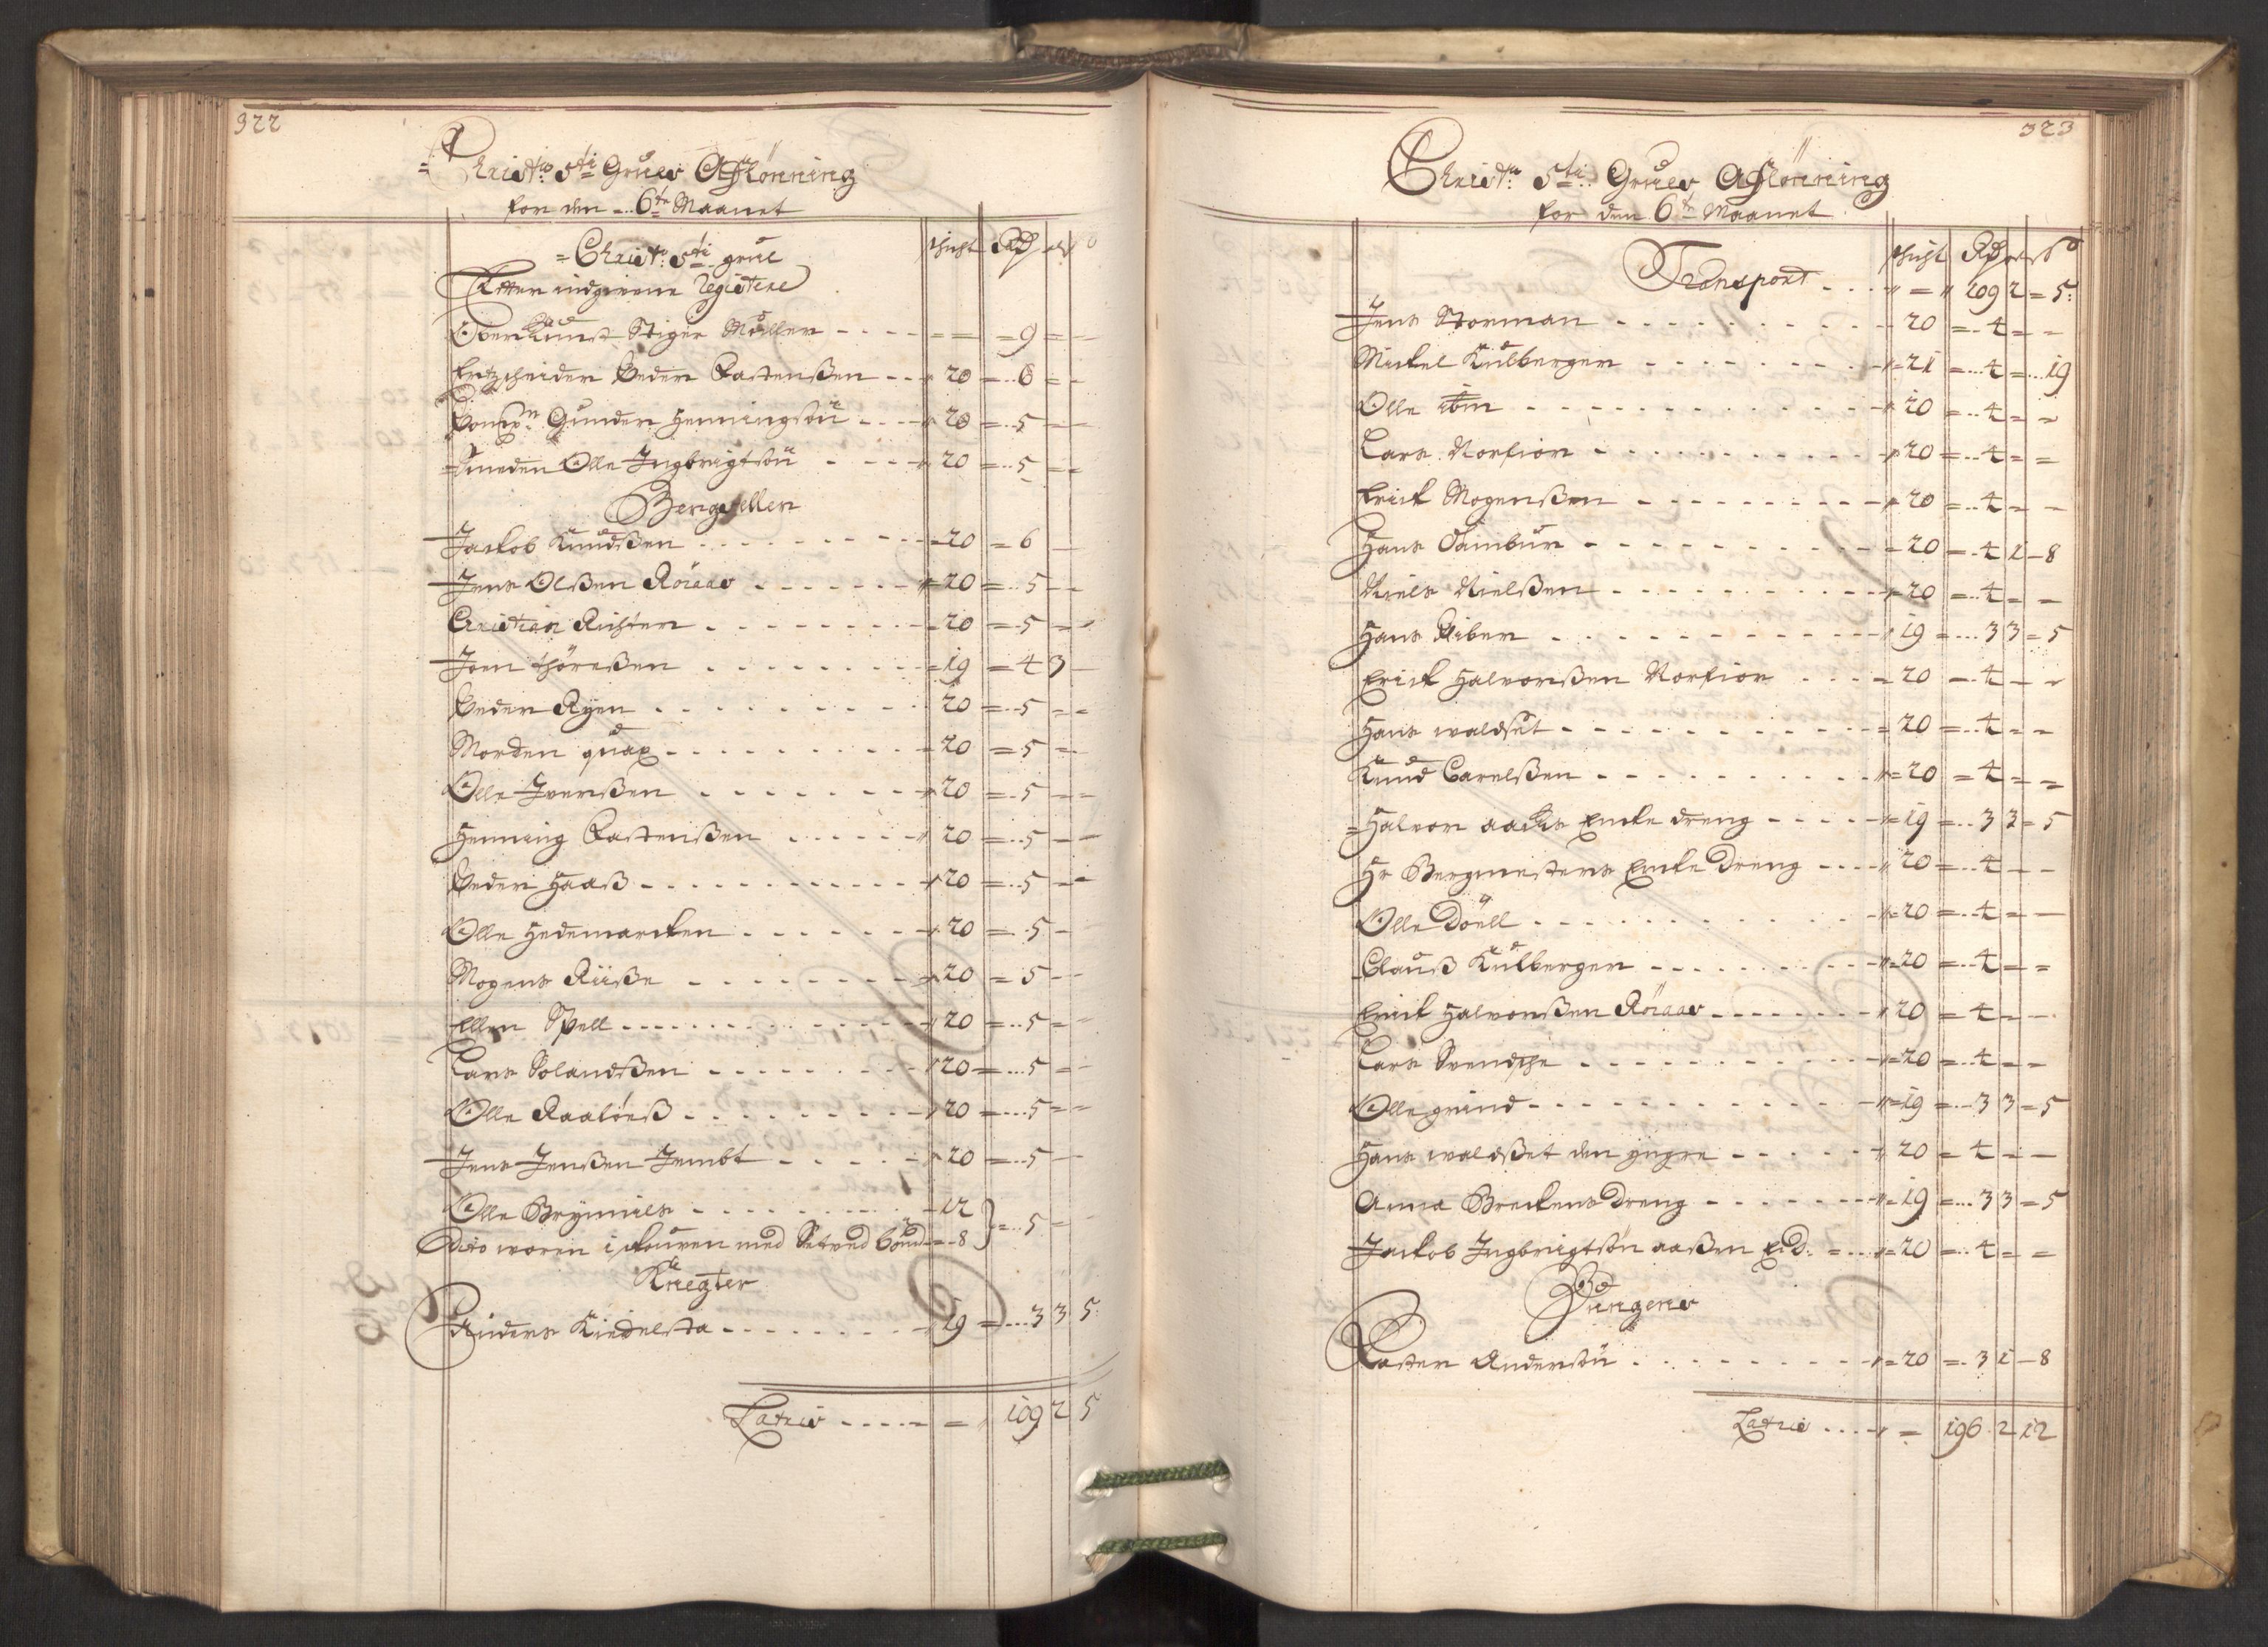 322
Christ: 5ti Grues Afflönning
for den 6te Maanet
Christ: 5ti grue
Efter indgivene Registere
schicht Rd ort s
Ober Kunst Stiger Müller - - - - 9
Ertzscheider Peder Rastenßen - - 20 - 6
Gunder Henningsøn - - 20 - 5
Smeden Olle Ingbrigtsøn - - 20 - 5
Bergsellen
Jackob Knudsßen - - 20 - 6
Jens Olßen Röraas - - 20 - 5
Cristian Richter - - 20 - 5
Joen thöreßen - - 19 - 4 3
Peder Ryen - - 20 - 5
Morden quax - - 20 - 5
Olle Iverßen - - 20 - 5
Henning Rastenßen - - 20 - 5
Peder Haaß - - 20 - 5
Olle Hedemarcken - - 20 - 5
Mogens Riiße - - 20 - 5
Ellen Spell - - 20 - 5
Lars Olandsßen - - 20 - 5
Olle Raalöeß - - 20 - 5
Jens Jenßen Jembt - - 20 - 5
Olle Brynniels - - 12
Dito woren i med Setved - 8 } - 5
Knegter
Anders Kindelsta - - 19 - 3 3 5
Latus - - 109 2 5
323
Christ: 5ti Grues Afflönning
for den 6te Maanet
schicht Rd ort s
Transport - - 109 2 - 5
Jens Storman - - 20 - 4
Mickel Kulberger - - 21 - 4 - 19
Olle ibm - - 20 - 4
Lars Norfior - - 20 - 4
Erick Mogenßen - - 20 - 4
Hans Dambur - - 20 - 4 1 - 8
Niels Nielßen - - 20 - 4
Hans Riber - - 19 - 3 3 - 5
Erick Halvorßen Norfior - - 20 - 4
Hans waldset - - 20 - 4
Knud Carelßen - - 20 - 4
Halvor aaens Encke dreng - - 19 - 3 3 - 5
Hr Bergmesterns Encke Dreng - - 20 - 4
Olle Döell - - 20 - 4
Clauß Kulberger - - 20 - 4
Erick Halvorßen Röraas - - 20 - 4
Lars Svendsche - - 20 - 4
Olle grind - - 19 - 3 3 - 5
Hans waldßet den yngre - - 20 - 4
Anna Breckens Dreng - - 19 - 3 3 - 5
Jackob Ingbrigtsøn aaßen - - 20 - 4
Pungens
Rasten Andersøn - - 20 - 3 1 - 8
Latus - - 196 2 12